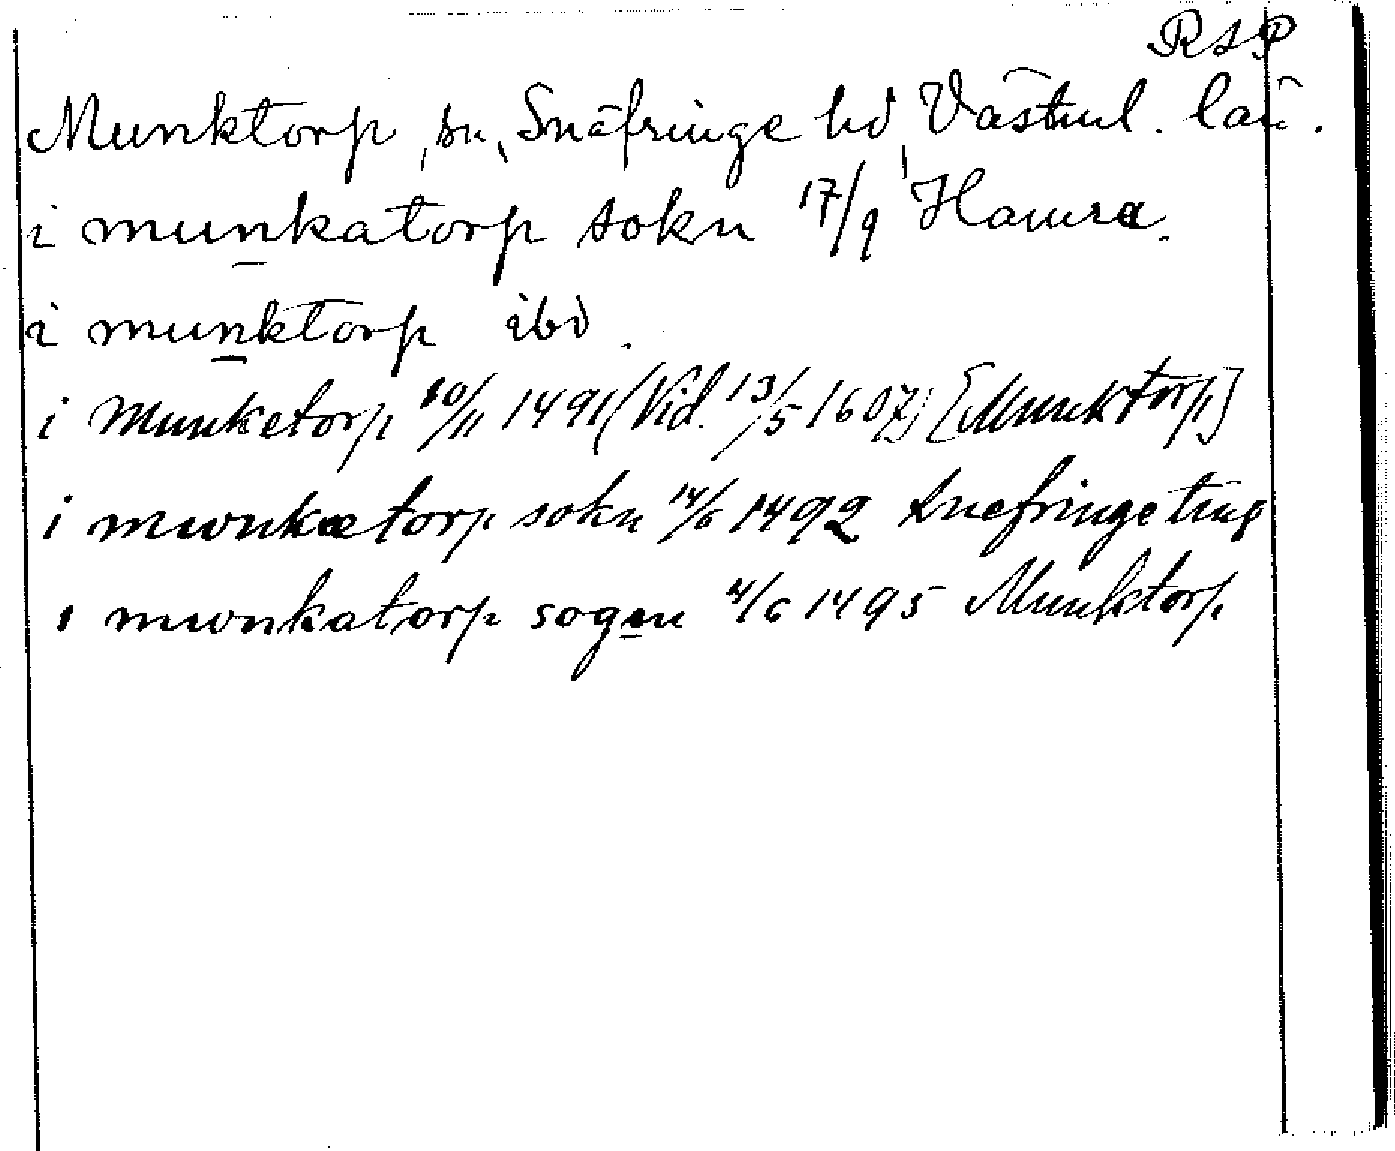 RSP
Munktorp, sn, Snäfringe hd, Västml. län.
i munkatorp sokn 17/9 Hamra.
i munktorp ibd.
i Munketorp 10/11 1491 (Vid. 13/5 1607) [Munktorp]
i mwnkætorp sokn 14/6 1492 Snefringe ting
i mwnkatorp sogen 4/6 1495 Munktorp